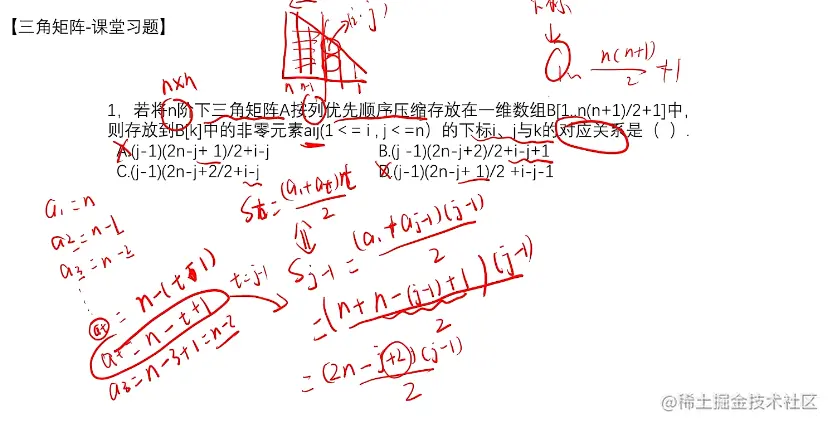 【三角矩阵-课堂习题】
下标1
n(n+1)/2 +1
n×n
n n-1 1
(i,j)
1，若将n阶下三角矩阵A按列优先顺序压缩存放在一维数组B[1..n(n+1)/2+1]中，
则存放到B[k]中的非零元素aij(1 < = i , j < =n）的下标i、j与k的对应关系是（ ）.
A.(j-1)(2n-j+ 1)/2+i-j
B.(j -1)(2n-j+2)/2+i-j+1
C.(j-1)(2n-j+2/2+i-j
D.(j-1)(2n-j+ 1)/2 +i-j-1
a1=n
a2=n-1
a3=n-2
at = n-(t-1)
at=n-t+1
a3=n-3+1=n-2
t=j-1
St=(a1+at)t/2
Sj-1 = (a1+aj-1)(j-1)/2
=(n+n-(j-1)+1)(j-1)/2
=(2n-j+2)(j-1)/2
@稀土掘金技术社区